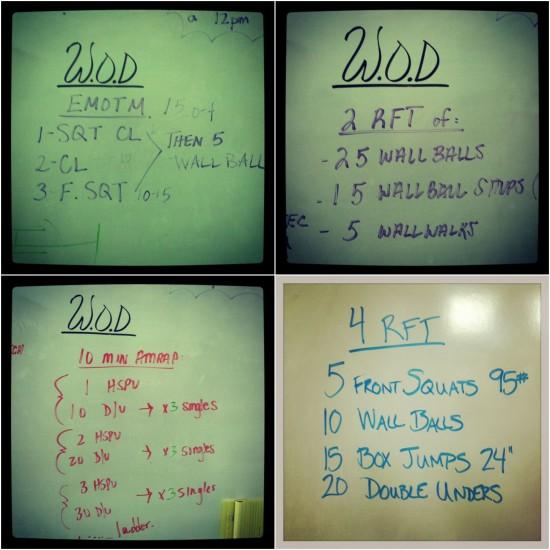 a 12pm
W.O.D
EMOTM 15 of
1-SQT CL
2-CL
3-F. SQT 10-15
THEN 5
WALL BALL
W.O.D
2 RFT of:
- 25 WALL BALLS
- 15 WALLBALL SITUPS
- 5 WALLWALKS
EC
W.O.D
10 MIN AMRAP:
1 HSPU
10 D/U → x3 singles
2 HSPU
20 D/U → x3 singles
3 HSPU
30 D/U → x3 singles
ladder.
4 RFT
5 FRONT SQUATS 95#
10 WALL BALLS
15 BOX JUMPS 24"
20 DOUBLE UNDERS